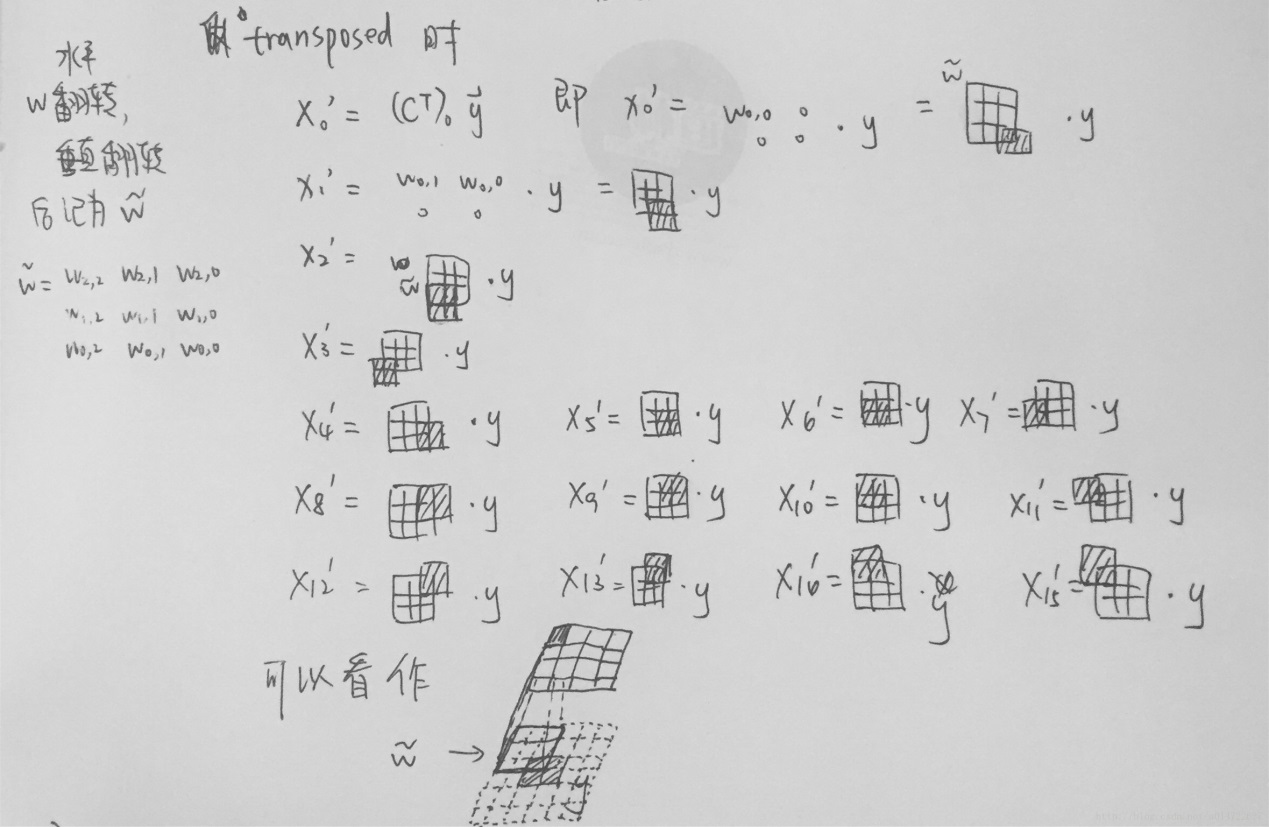 做 transposed 时
水平
w翻转,
垂直翻转
后记为 w̃
w̃ = w2,2 w2,1 w2,0
w1,2 w1,1 w1,0
w0,2 w0,1 w0,0
X0' = (C^T)0 y⃗ 即 x0' = w0,0 0 · y = w̃ · y
0 0
X1' = w0,1 w0,0 · y = · y
0 0
X2' = w̃ · y
X3' = · y
X4' = · y X5' = · y X6' = · y X7' = · y
X8' = · y X9' = · y X10' = · y X11' = · y
X12' = · y X13' = · y X16' = · y X15' = · y
可以看作
w̃ →
y